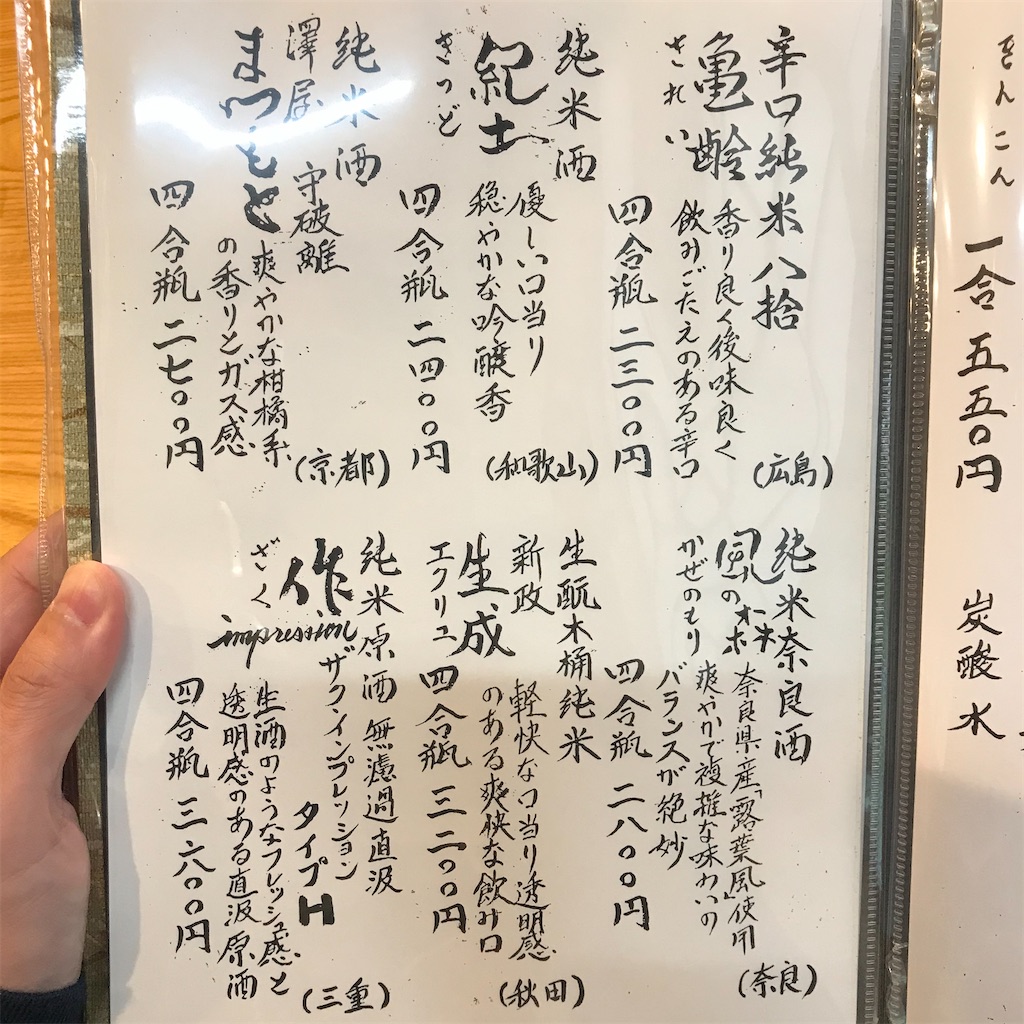 きんこん
一合 五五〇円
炭酸水
辛口純米八拾
亀齢
きれい
香り良く後味良く
飲みごたえのある辛口
四合瓶 二三〇〇円
(広島)
純米酒
紀土
きっど
優しい口当り
穏やかな吟醸香
四合瓶 二四〇〇円
(和歌山)
純米酒
澤屋 守破離
まつもと
爽やかな柑橘系
の香りとガス感
四合瓶 二七〇〇円
(京都)
純米奈良酒
風の森
かぜのもり
奈良県産「露葉風」使用
爽やかで複雑な味わいの
バランスが絶妙
四合瓶 二八〇〇円
(奈良)
生酛木桶純米
新政
生成
エクリュ
軽快な口当り透明感
のある爽快な飲み口
四合瓶 三二〇〇円
(秋田)
純米原酒 無濾過直汲
作
ざく
impression
ザクインプレッション
タイプH
生酒のようなフレッシュ感と
透明感のある直汲原酒
四合瓶 三六〇〇円
(三重)